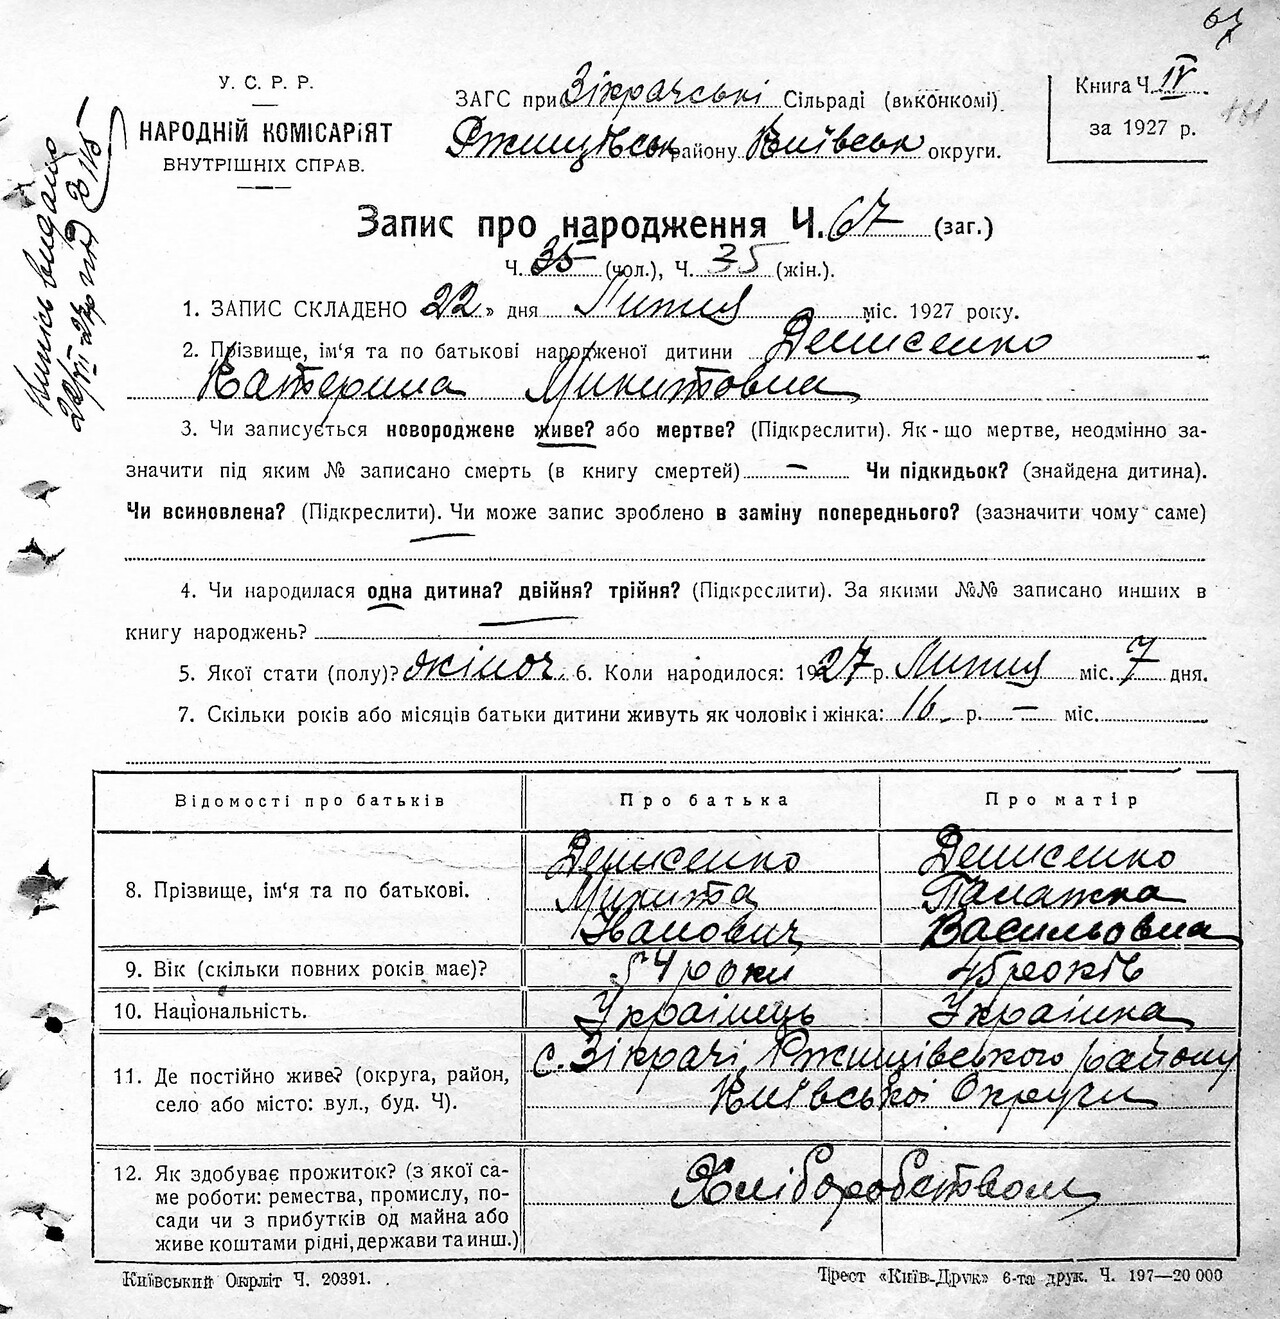 67
У. С. Р. Р.
НАРОДНІЙ КОМІСАРІЯТ
ВНУТРІШНІХ СПРАВ.
ЗАГС при Зікрачські Сільраді (виконкомі).
Ржищівськ району Київськ округи.
Книга Ч. IV
за 1927 р.
Запис про народження Ч. 67 (заг.)
Ч. 35 (чол.), Ч. 35 (жін.).
1. ЗАПИС СКЛАДЕНО 22 » дня Липня міс. 1927 року.
2. Прізвище, ім'я та по батькові народженої дитини Денисенко
Катерина Микитовна
3. Чи записується новороджене живе? або мертве? (Підкреслити). Як-що мертве, неодмінно за-
значити під яким № записано смерть (в книгу смертей) — Чи підкидьок? (знайдена дитина).
Чи всиновлена? (Підкреслити). Чи може запис зроблено в заміну попереднього? (зазначити чому саме)
4. Чи народилася одна дитина? двійня? трійня? (Підкреслити). За якими №№ записано инших в
книгу народжень?
5. Якої стати (полу)? жіноч. 6. Коли народилося: 1927 р. Липня міс. 7 дня.
7. Скільки років або місяців батьки дитини живуть як чоловік і жінка: 16 р. — міс.
Відомості про батьків Про батька Про матір
8. Прізвище, ім'я та по батькові. Денисенко Микита Іванович Денисенко Палажка Васильовна
9. Вік (скільки повних років має)? 54 роки 45 років
10. Національність. Українець Українка
11. Де постійно живе? (округа, район, с. Зікрачі, Ржищівського району
село або місто: вул., буд. Ч). Київської Округи
12. Як здобуває прожиток? (з якої са- Хліборобством
ме роботи: ремества, промислу, по-
сади чи з прибутків од майна або
живе коштами рідні, держави та инш.)
Київський Окрліт Ч. 20391.
Трест «Київ-Друк» 6-та друк. Ч. 197—20 000